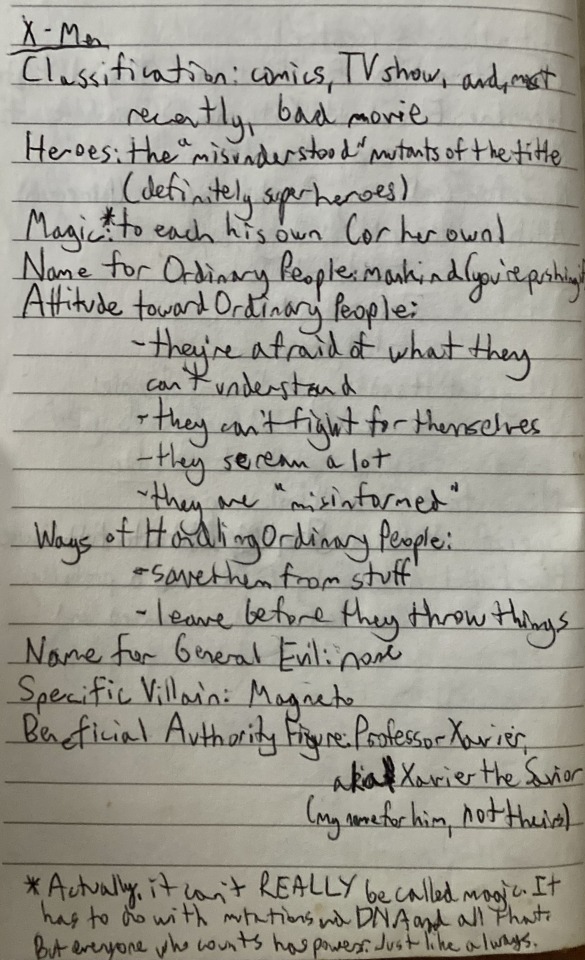 X-Men
Classification: comics, TV show, and, most
recently, bad movie
Heroes: the "misunderstood" mutants of the title
(definitely superheroes)
Magic*: to each his own (or her own)
Name for Ordinary People: mankind (you're pushing it
Attitude toward Ordinary People:
- they're afraid of what they
can't understand
- they can't fight for themselves
- they scream a lot
- they are "misinformed"
Ways of Handling Ordinary People:
- save them from stuff
- leave before they throw things
Name for General Evil: none
Specific Villain: Magneto
Beneficial Authority Figure: Professor Xavier,
aka Xavier the Savior
(my name for him, not theirs)
* Actually, it can't REALLY be called magic. It
has to do with mutations in DNA and all that.
But everyone who counts has powers. Just like always.